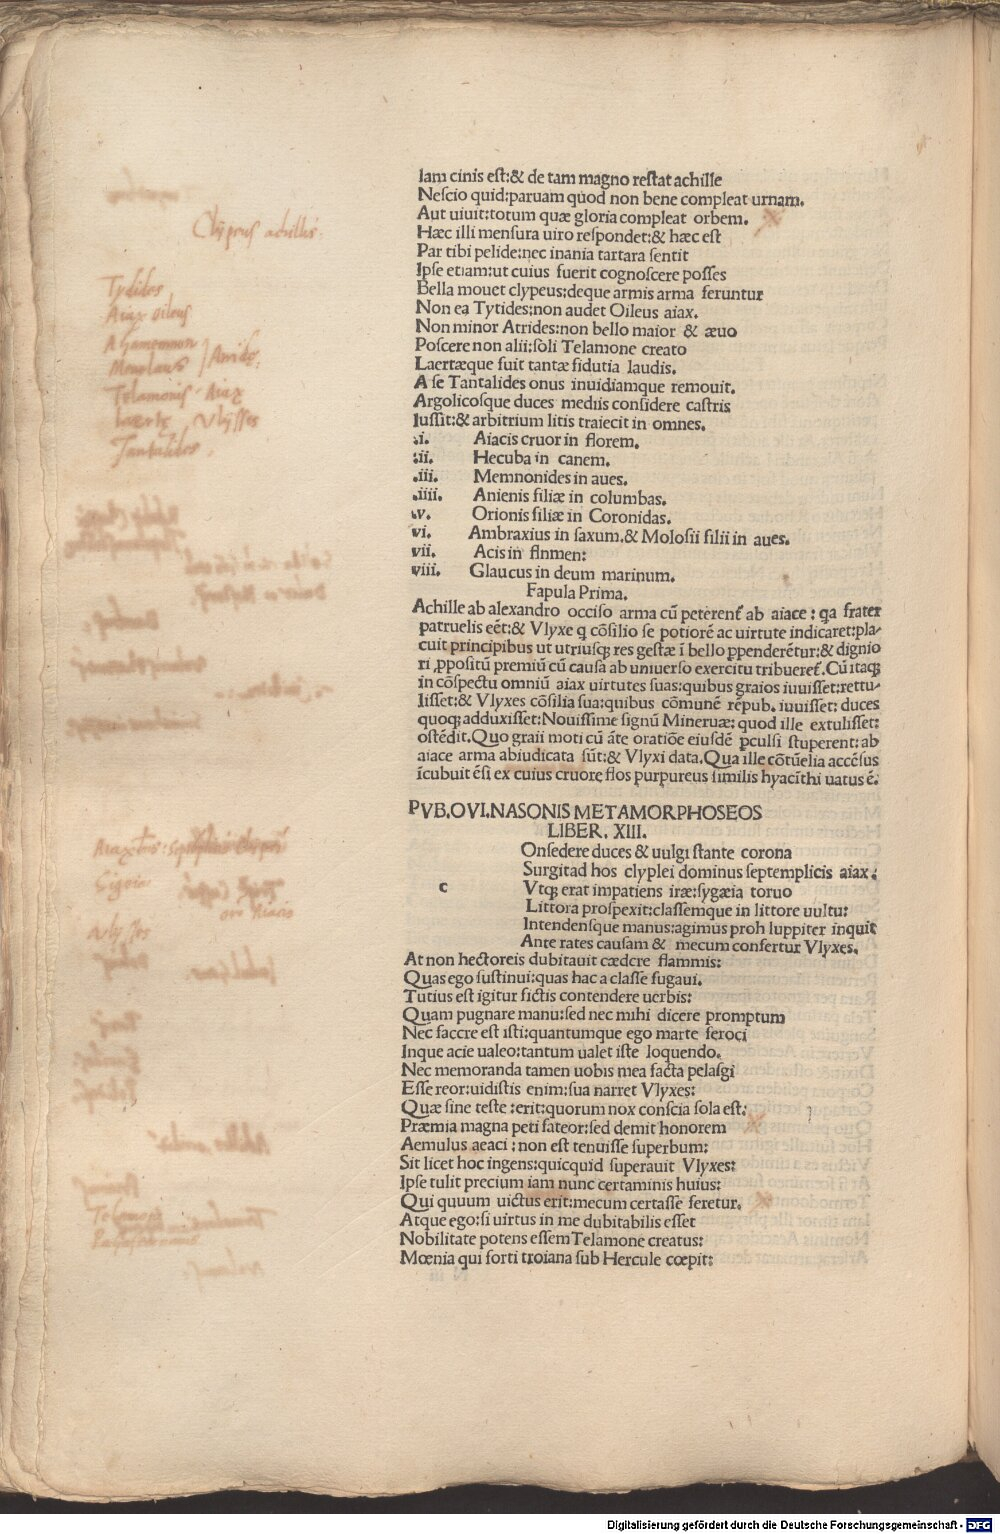 Iam cinis est:& de tam magno restat achille
Nescio quid:paruam quod non bene compleat urnam.
Aut uiuit:totum quæ gloria compleat orbem.
Clypeus achillis.
Hæc illi mensura uiro respondet:& hæc est
Par tibi pelide:nec inania tartara sentit
Ipse etiam:ut cuius fuerit cognoscere posses
Tydides
Bella mouet clypeus:deque armis arma feruntur
Aiax oileus
Non ea Tytides:non audet Oileus aiax.
Agamemnon
Non minor Atrides:non bello maior & æuo
Menelaus Atride,
Poscere non alii:soli Telamone creato
Telamonis Aiax
Laertæque fuit tantæ fidutia laudis.
Laerte Vlysses
A se Tantalides onus inuidiamque remouit.
Tantalides
Argolicosque duces mediis considere castris
Iussit:& arbitrium litis traiecit in omnes.
.i. Aiacis cruor in florem.
.ii. Hecuba in canem.
.iii. Memnonides in aues.
.iiii. Anienis filiæ in columbas.
.v. Orionis filiæ in Coronidas.
vi. Ambraxius in saxum.& Molosii filii in aues.
vii. Acis in flnmen:
viii. Glaucus in deum marinum.
Fapula Prima.
Achille ab alexandro occiso arma cũ peterent̃ ab aiace: qa frater
patruelis eẽt:& Vlyxe q cõsilio se potiorẽ ac uirtute indicaret:pla-
cuit principibus ut utriusq; res gestæ ĩ bello ppenderẽtur:& dignio
ri ppositũ premiũ cũ causa ab uniuerso exercitu tribueret̃.Cũ itaq;
in cõspectu omniũ aiax uirtutes suas:quibus graios iuuisset:rettu-
lisset:& Vlyxes cõsilia sua:quibus cõmunẽ rẽpub. iuuisset: duces
quoq; adduxisset:Nouissime signũ Mineruæ: quod ille extulisset:
ostẽdit.Quo graii moti cũ ãte oratiõe eiusdẽ pculsi stuperent: ab
aiace arma abiudicata sũt:& Vlyxi data.Qua ille cõtũelia accẽsus
ĩcubuit ẽsi ex cuius cruore flos purpureus similis hyacĩthi uatus ẽ.
PVB.OVI.NASONIS METAMORPHOSEOS
LIBER. XIII.
Onsedere duces & uulgi stante corona
Surgit ad hos clyplei dominus septemplicis aiax:
c Vtq; erat impatiens iræ:sygæia toruo
Littora prospexit:classemque in littore uultu:
Intendensque manus:agimus proh Iuppiter inquit
Ante rates causam & mecum confertur Vlyxes.
At non hectoreis dubitauit cædere flammis:
Quas ego sustinui:quas hac a classe fugaui.
Tutius est igitur fictis contendere uerbis:
Quam pugnare manu:sed nec mihi dicere promptum
Nec faccre est isti:quantumque ego marte feroci
Inque acie ualeo:tantum ualet iste loquendo.
Nec memoranda tamen uobis mea facta pelasgi
Esse reor:uidistis enim:sua narret Vlyxes:
Quæ sine teste :erit:quorum nox conscia sola est:
Præmia magna peti fateor:sed demit honorem
Aemulus aeaci : non est tenuisse superbum:
Sit licet hoc ingens:quicquid superauit Vlyxes:
Ipse tulit precium iam nunc certaminis huius:
Qui quum uictus erit:mecum certasse feretur.
Atque ego:si uirtus in me dubitabilis esset
Nobilitate potens essem Telamone creatus:
Mœnia qui forti troiana sub Hercule cœpit:
Digitalisierung gefördert durch die Deutsche Forschungsgemeinschaft - DFG